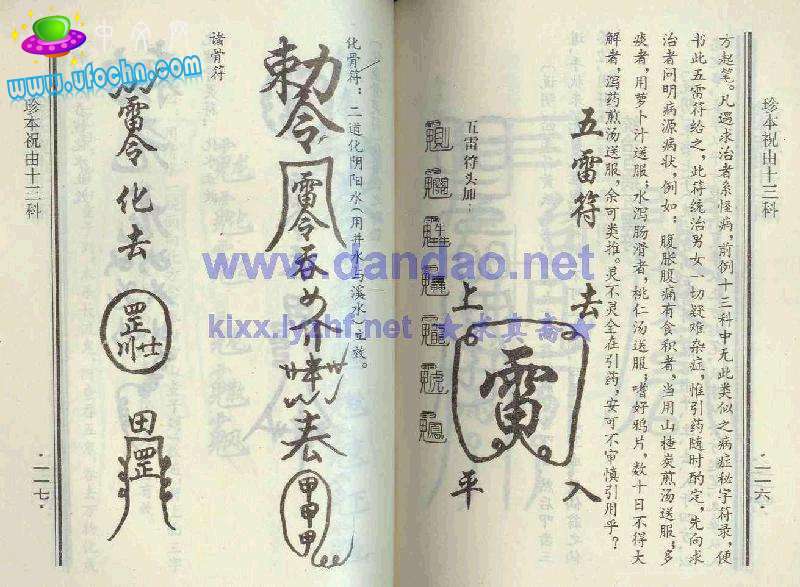 珍本祝由十三科
·一一六·
方起笔。凡遇求治者系怪病,前例十三科中无此类似之病症秘字符录,便
书此五雷符给之,此符统治男女一切疑难杂症,惟引药随时酌定,先向求
治者问明病源病状,例如:腹胀腹痛有食积者,当用山楂炭煎汤送服;多
痰者,用萝卜汁送服;水泻肠滑者,桃仁汤送服;嗜好鸦片,数十日不得大
解者,泻药煎汤送服,余可类推。灵不灵全在引药,安可不审慎引用乎?
五雷符
去 入
雷
上 平
五雷符头加:
化骨符:二道化阴阳水(用井水与溪水)立效。
敕令
雷令
吞
诸骨符
雷令化去
罡
田罡
珍本祝由十三科
·一一七·
www.ufochn.com
www.dandao.net
kixx.lyzhf.net ★求真斋★